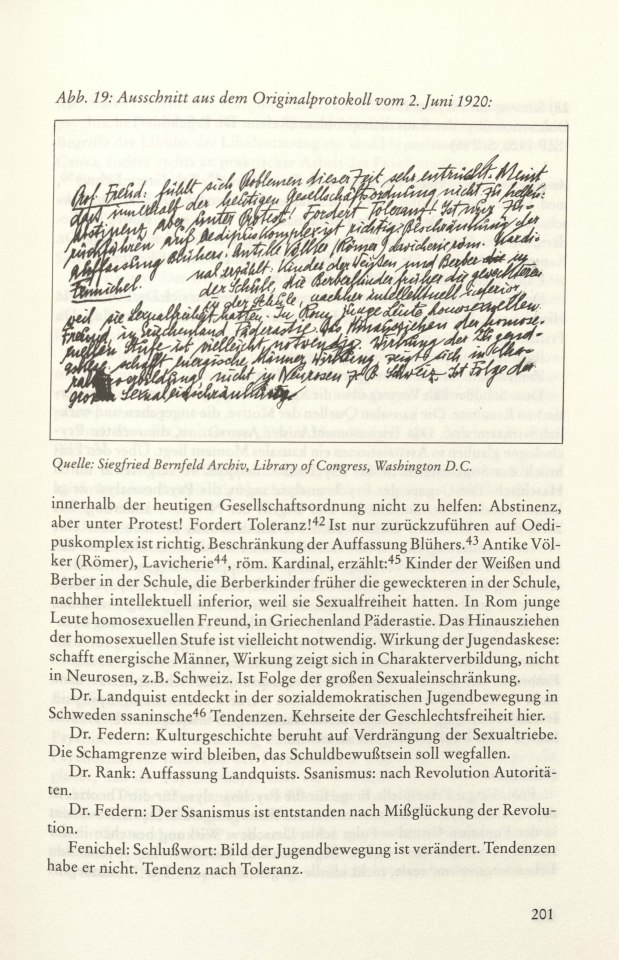 Abb. 19: Ausschnitt aus dem Originalprotokoll vom 2. Juni 1920:
Prof. Freud: fühlt sich Problemen dieser Zeit sehr entrückt. Meint
daß innerhalb der heutigen Gesellschaftsordnung nicht zu helfen:
Abstinenz, aber unter Protest! Fordert Toleranz! Ist nur zu-
rückführen auf Oedipuskomplex ist richtig. Beschränkung der
Auffassung Blühers. Antike Völker (Römer) Lavicherie röm. Kardi-
Fennichel. nal erzählt: Kinder der Weißen und Berber in
der Schule, die Berberkinder früher die geweckteren
in der Schule, nachher intellektuell inferior
weil sie Sexualfreiheit hatten. In Rom junge Leute homosexuellen
Freund, in Griechenland Päderastie. Das Hinausziehen der homose-
xuellen Stufe ist vielleicht notwendig. Wirkung der Jugend-
askese: schafft energische Männer, Wirkung zeigt sich in Cha-
rakterverbildung nicht in Neurosen z.B. Schweiz. Ist Folge der
großen Sexualeinschränkung.
Quelle: Siegfried Bernfeld Archiv, Library of Congress, Washington D.C.
innerhalb der heutigen Gesellschaftsordnung nicht zu helfen: Abstinenz,
aber unter Protest! Fordert Toleranz!42 Ist nur zurückzuführen auf Oedi-
puskomplex ist richtig. Beschränkung der Auffassung Blühers.43 Antike Völ-
ker (Römer), Lavicherie44, röm. Kardinal, erzählt:45 Kinder der Weißen und
Berber in der Schule, die Berberkinder früher die geweckteren in der Schule,
nachher intellektuell inferior, weil sie Sexualfreiheit hatten. In Rom junge
Leute homosexuellen Freund, in Griechenland Päderastie. Das Hinausziehen
der homosexuellen Stufe ist vielleicht notwendig. Wirkung der Jugendaskese:
schafft energische Männer, Wirkung zeigt sich in Charakterverbildung, nicht
in Neurosen, z.B. Schweiz. Ist Folge der großen Sexualeinschränkung.
Dr. Landquist entdeckt in der sozialdemokratischen Jugendbewegung in
Schweden ssaninsche46 Tendenzen. Kehrseite der Geschlechtsfreiheit hier.
Dr. Federn: Kulturgeschichte beruht auf Verdrängung der Sexualtriebe.
Die Schamgrenze wird bleiben, das Schuldbewußtsein soll wegfallen.
Dr. Rank: Auffassung Landquists. Ssanismus: nach Revolution Autoritä-
ten.
Dr. Federn: Der Ssanismus ist entstanden nach Mißglückung der Revolu-
tion.
Fenichel: Schlußwort: Bild der Jugendbewegung ist verändert. Tendenzen
habe er nicht. Tendenz nach Toleranz.
201